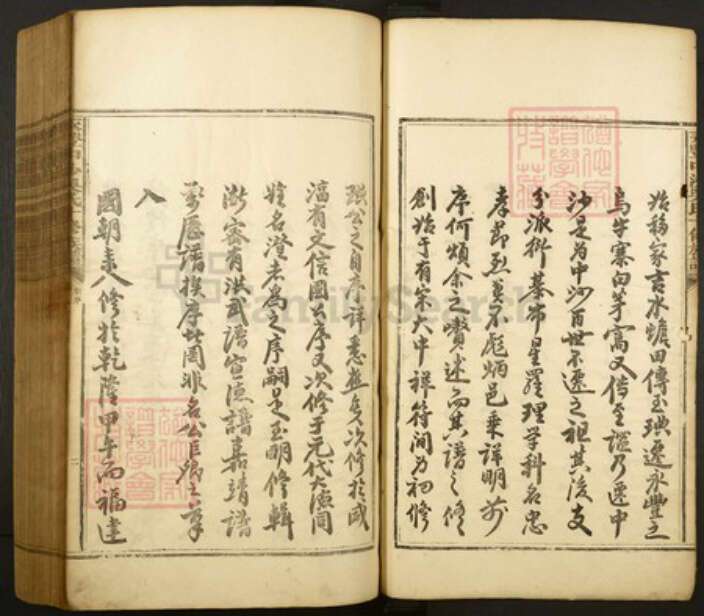 始移家吉水螗田傳至琠遷永豐之
烏牛寨白茅窩又傳至諡乃遷中
沙是為中沙百世不遷之祖其後支
分派衍棊布星羅理学科名忠
孝節烈莫不彪炳邑乗詳明前
序何煩余之贅述而其譜之修
創始于有宋大中祥符间為初修
珙公之自序詳悉無矣次修於咸
淳有文信國公序又次修于元代大德间
姪名澄者為之序嗣是至明修輯
漸審有洪武譜宣德譜嘉靖譜
萬曆譜撰序皆罔非名公巨卿之筆
入
國朝来修於乾隆甲午而福建
FamilySearch